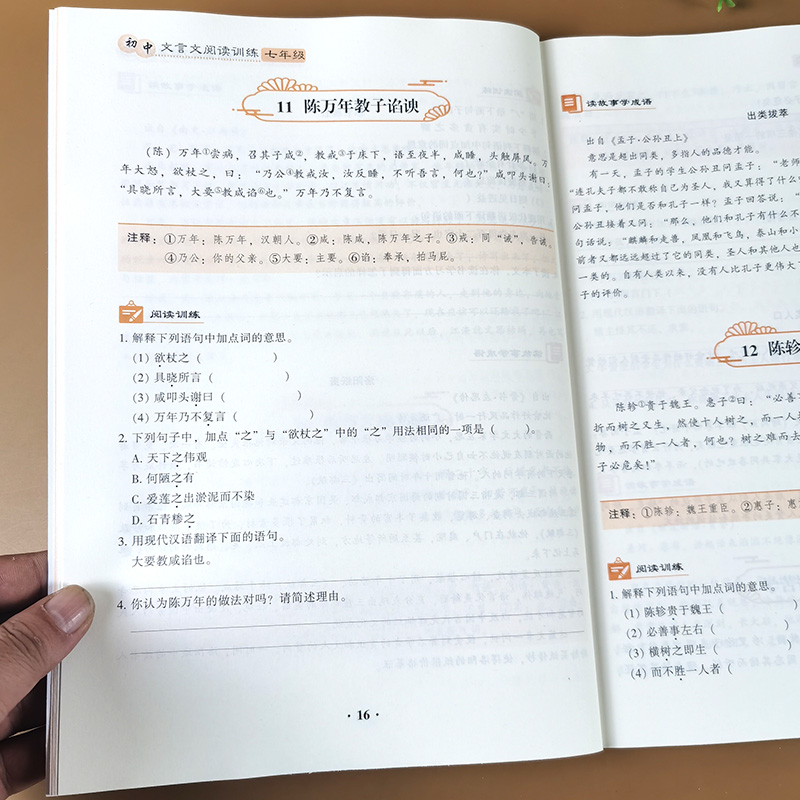 初中 文言文阅读训练 七年级
11 陈万年教子谄谀
(陈)万年①尝病,召其子咸②,教戒③于床下,语至夜半,咸睡,头触屏风。万
年大怒,欲杖之,曰:“乃公④教戒汝,汝反睡,不听吾言,何也?”咸叩头谢曰:
“具晓所言,大要⑤教咸谄⑥也。”万年乃不复言。
注释:①万年:陈万年,汉朝人。②咸:陈咸,陈万年之子。③戒:同“诫”,告诫。
④乃公:你的父亲。⑤大要:主要。⑥谄:奉承,拍马屁。
阅读训练
1. 解释下列语句中加点词的意思。
(1) 欲杖之( )
(2) 具晓所言( )
(3) 咸叩头谢曰( )
(4) 万年乃不复言( )
2. 下列句子中,加点“之”与“欲杖之”中的“之”用法相同的一项是( )。
A. 天下之伟观
B. 何陋之有
C. 爱莲之出淤泥而不染
D. 石青糁之
3. 用现代汉语翻译下面的语句。
大要教咸谄也。
4. 你认为陈万年的做法对吗?请简述理由。
· 16 ·
读故事学成语
出类拔萃
出自《孟子·公孙丑上》
意思是超出同类,多指人的品德才能。
有一天,孟子的学生公孙丑问孟子:“老师
“连孔夫子都不敢称自己为圣人,我又算得了什么
问孟子,他们是否和孔子一样?孟子回答说:“
公孙丑接着又问:“那么,他们和孔子有什么不
句话说:“麒麟和走兽,凤凰和飞鸟,泰山和小
前者又都远远超过了它的同类,圣人和其他人也
一类的。自有人类以来,没有人比孔子更伟大
子的评价。
12 陈轸
陈轸①贵于魏王。惠子②曰:“必善事
折而树之又生,然使十人树之,而一人
物,而不胜一人者,何也?树之难而去
子必危矣!”
注释:①陈轸:魏王重臣。②惠子:惠
阅读训练
1. 解释下列语句中加点词的意思。
(1) 陈轸贵于魏王(
(2) 必善事左右(
(3) 横树之即生(
(4) 而不胜一人者(